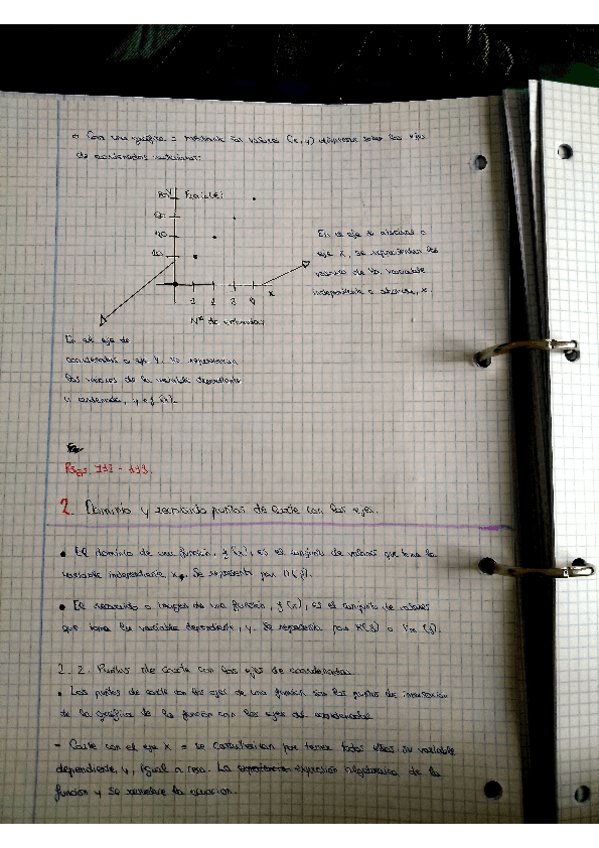 - Con una gráfica = mediante los valores (x, y) dispuestos sobre los ejes
de coordenadas cartesianas.
80
60
40
20
1 2 3 4
x
Nº de
En el eje de abscisas o
eje X, se representan los
valores de la variable
independiente o abscisa, x.
En el eje de
coordenadas o eje Y, se representan
los valores de la variable dependiente
u ordenada, y = f (x).
112 - 113.
2. Dominio y recorrido puntos de corte con los ejes.
• El dominio de una función, f (x), es el conjunto de valores que toma la
variable independiente, x. Se representa por D(f).
• El recorrido o imagen de una función, f (x), es el conjunto de valores
que toma la variable dependiente, y. Se representa por R(f) o Im (f).
2. 2. Puntos de corte con los ejes de coordenadas
• Los puntos de corte con los ejes de una función son los puntos de intersección
de la gráfica de la función con los ejes de coordenadas
- Corte con el eje X = se caracterizan por tener todos ellos su variable
dependiente, y, igual a cero. La expresión algebraica de la
función y se resuelve la ecuación.